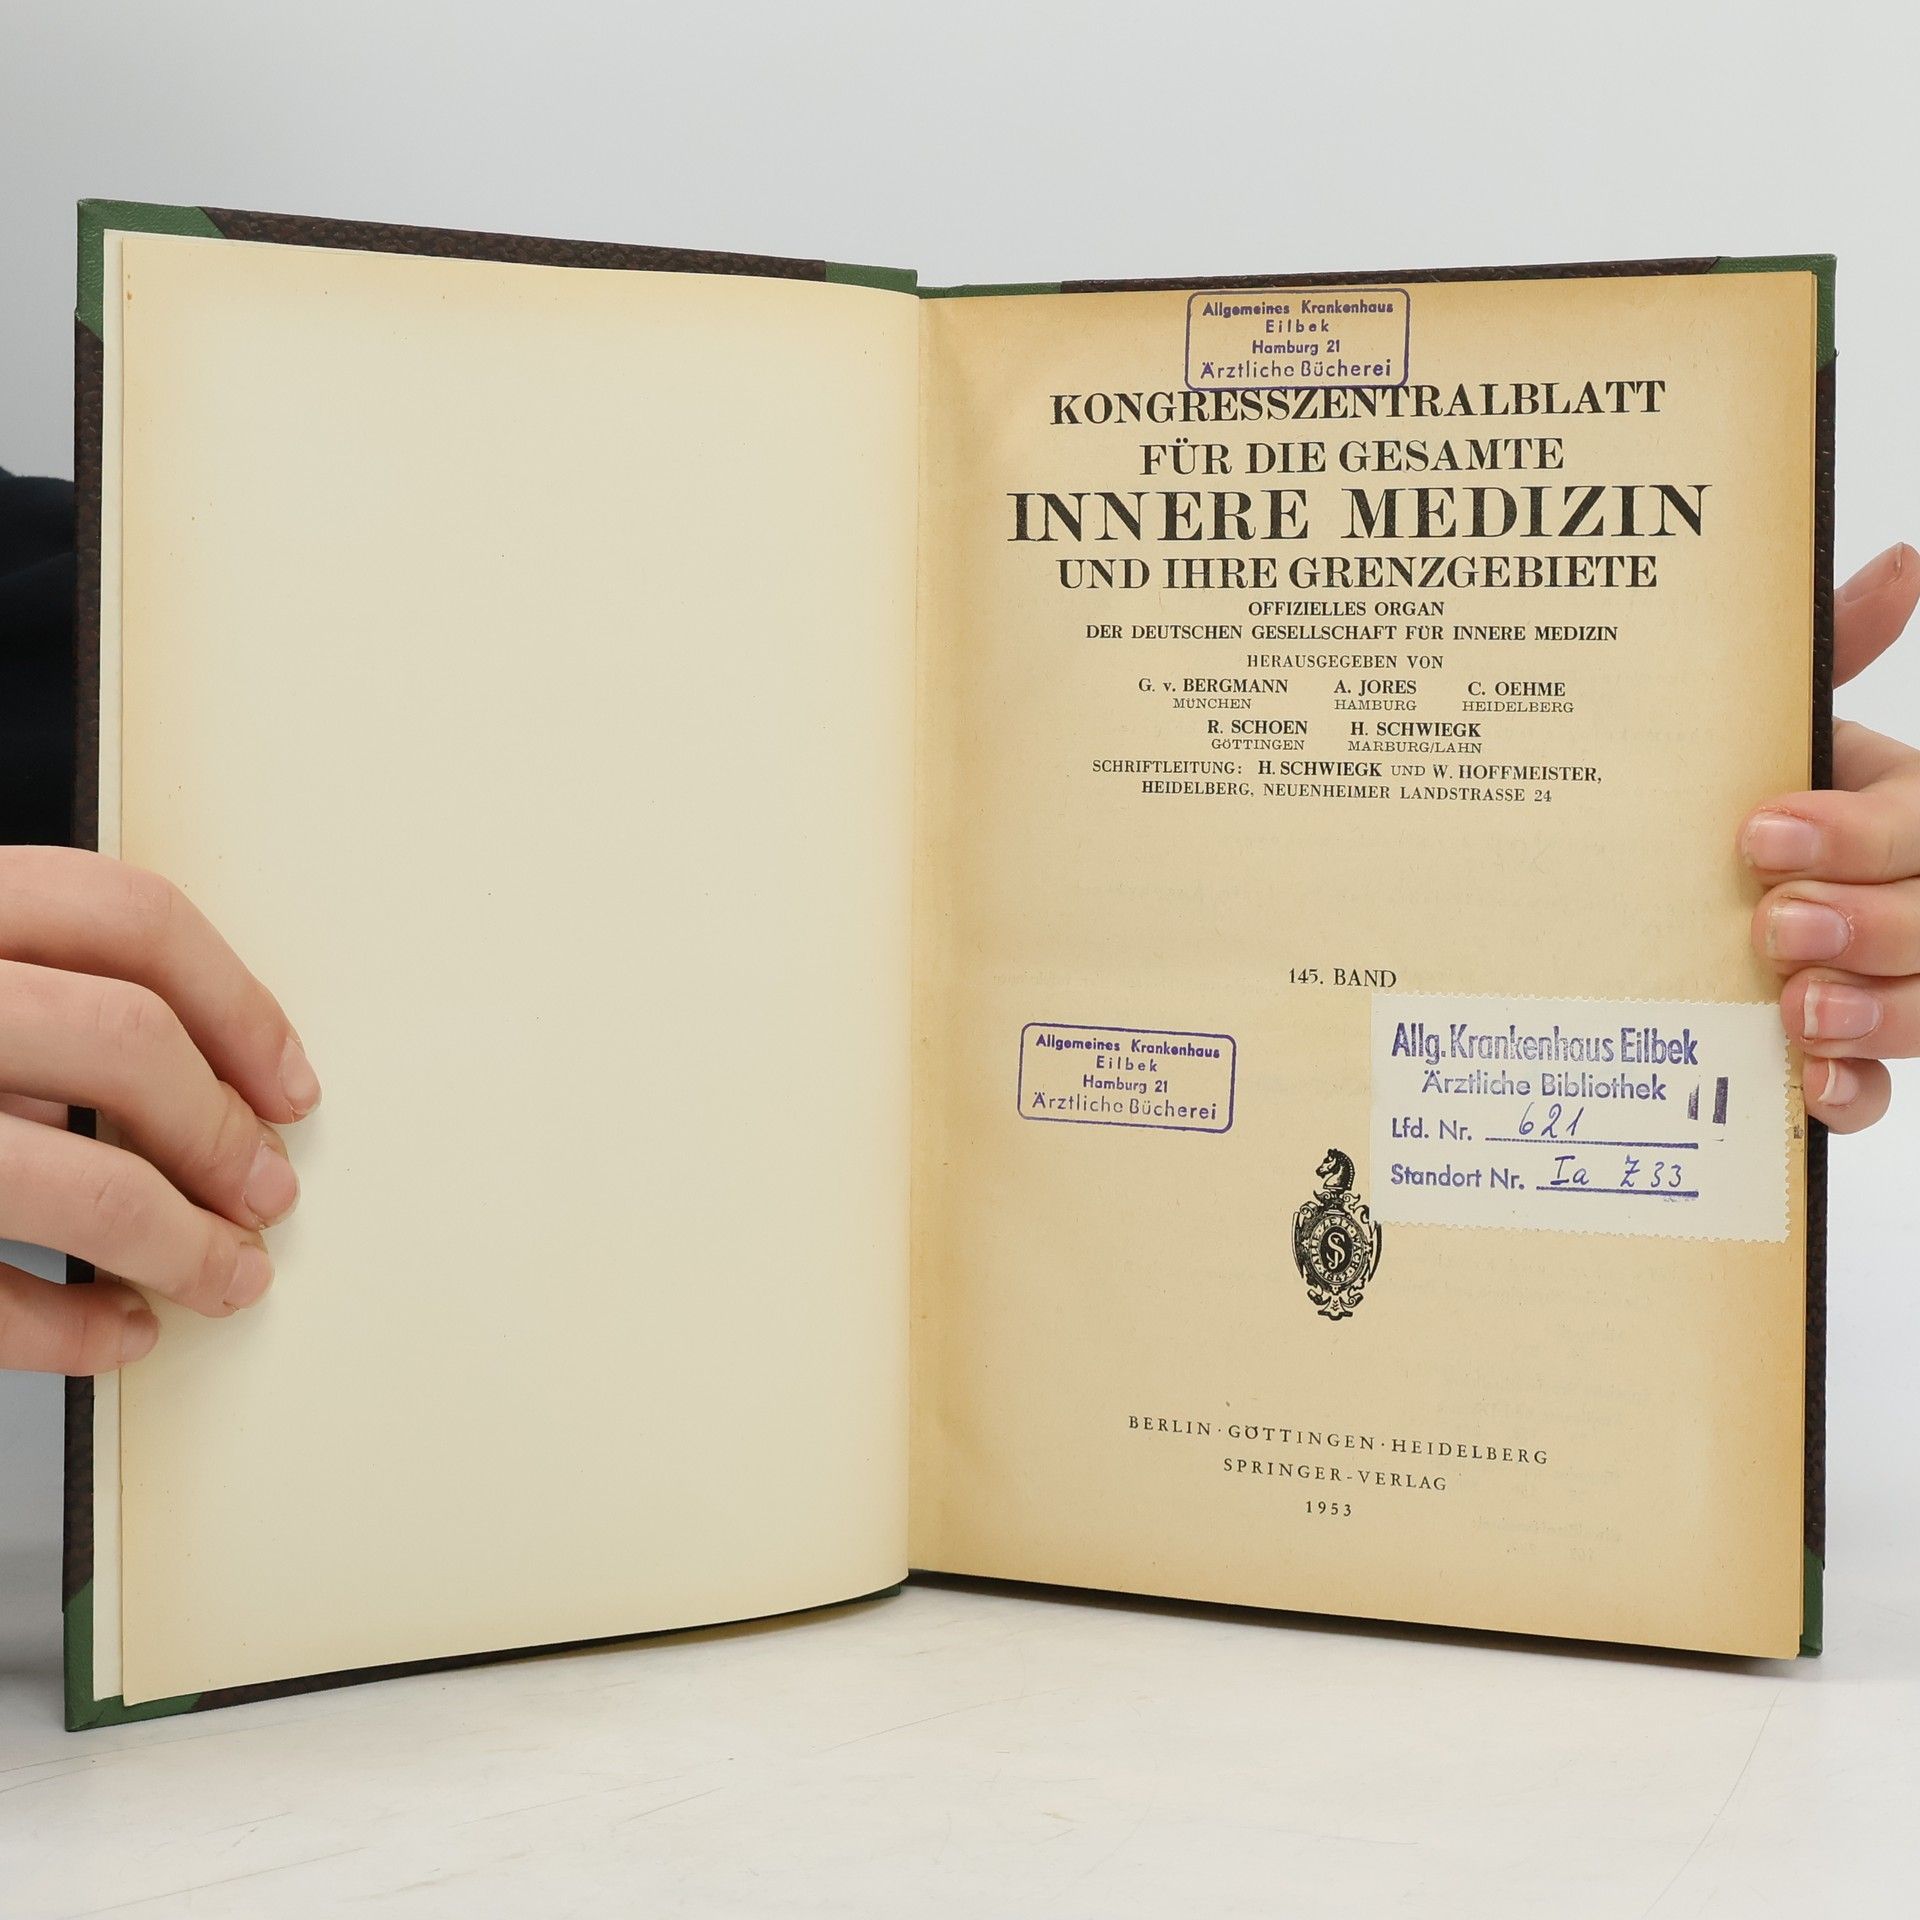 Allgemeines Krankenhaus
Eilbek
Hamburg 21
Ärztliche Bücherei
KONGRESSZENTRALBLATT
FÜR DIE GESAMTE
INNERE MEDIZIN
UND IHRE GRENZGEBIETE
OFFIZIELLES ORGAN
DER DEUTSCHEN GESELLSCHAFT FÜR INNERE MEDIZIN
HERAUSGEGEBEN VON
G. v. BERGMANN A. JORES C. OEHME
MÜNCHEN HAMBURG HEIDELBERG
R. SCHOEN H. SCHWIEGK
GÖTTINGEN MARBURG/LAHN
SCHRIFTLEITUNG: H. SCHWIEGK UND W. HOFFMEISTER,
HEIDELBERG, NEUENHEIMER LANDSTRASSE 24
145. BAND
Allgemeines Krankenhaus
Eilbek
Hamburg 21
Ärztliche Bücherei
Allg. Krankenhaus Eilbek
Ärztliche Bibliothek
Lfd. Nr. 621
Standort Nr. Ia Z 33
BERLIN · GÖTTINGEN · HEIDELBERG
SPRINGER-VERLAG
1953